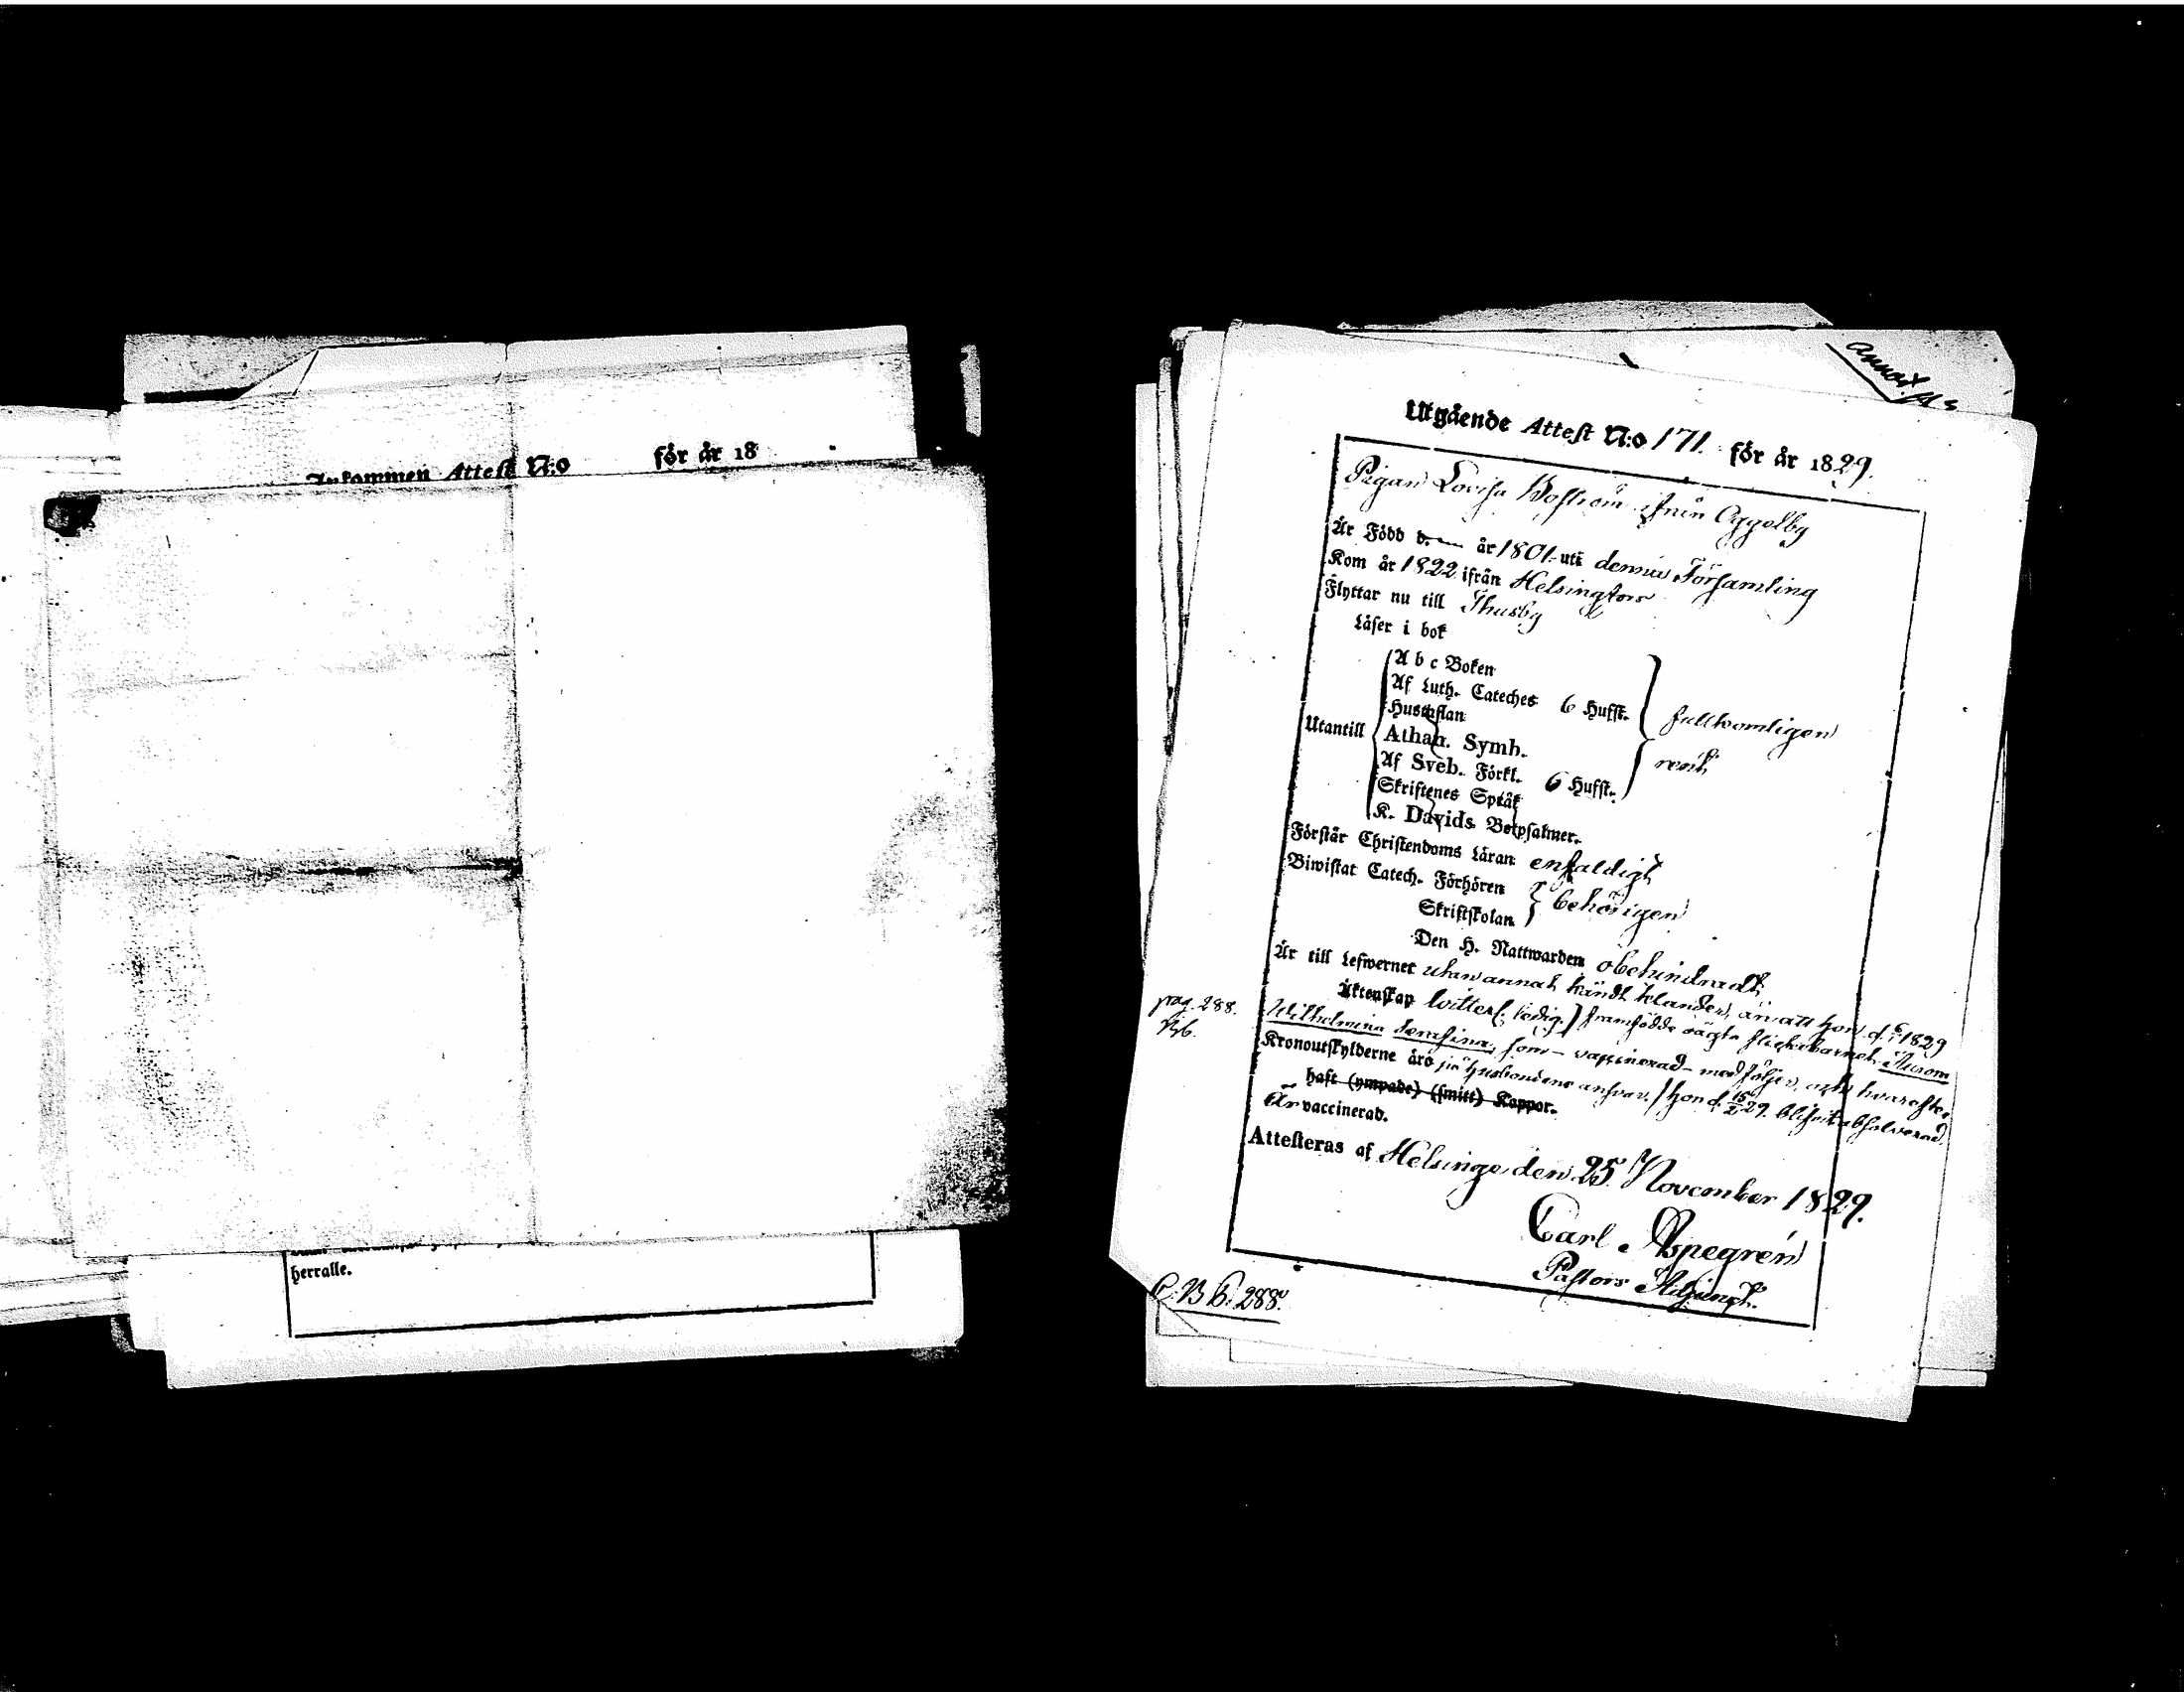 Inkommen Attest N:o för år 18
herralle.
Annot.
Utgående Attest N:o 171. för år 1829.
Pigan Lovisa Boström ifrån Oggelby
Är Född d. — år 1801 uti denna Församling
Kom år 1822 ifrån Helsingfors
Flyttar nu till Thusby
Läser i bok
A b c Boken
Af Luth. Cateches 6 Hufst.
Hustaflan
fullkomligen
Utantill
Athan. Symb.
rent
Af Sveb. Förkl. 6 Hufst.
Skriftenes Språk
K. Davids Botpsalmer.
Förstår Christendoms Läran enfaldigt
Biwistat Catech. Förhören
behörigen
Skriftskolan
Den H. Nattwarden obehindradt
Är till Lefwernet utan annat kändt klander, än att hon d. 1829
Äktenskap (: ledig.) framfödde oägta flickebarnet
pag. 288.
Wilhelmina Serafina, som – vaccinerad – medföljer, och hvarefter
Kronoutskylderne äro på husbondens ansvar. hon d. 15/2 29. blifvit absolverad.
haft (ympade) (smitt) Koppor.
Är vaccinerad.
Attesteras af Helsinge den 25 November 1829.
Carl Aspegrén
Pastors Adjunct.
C. B. b. 288.